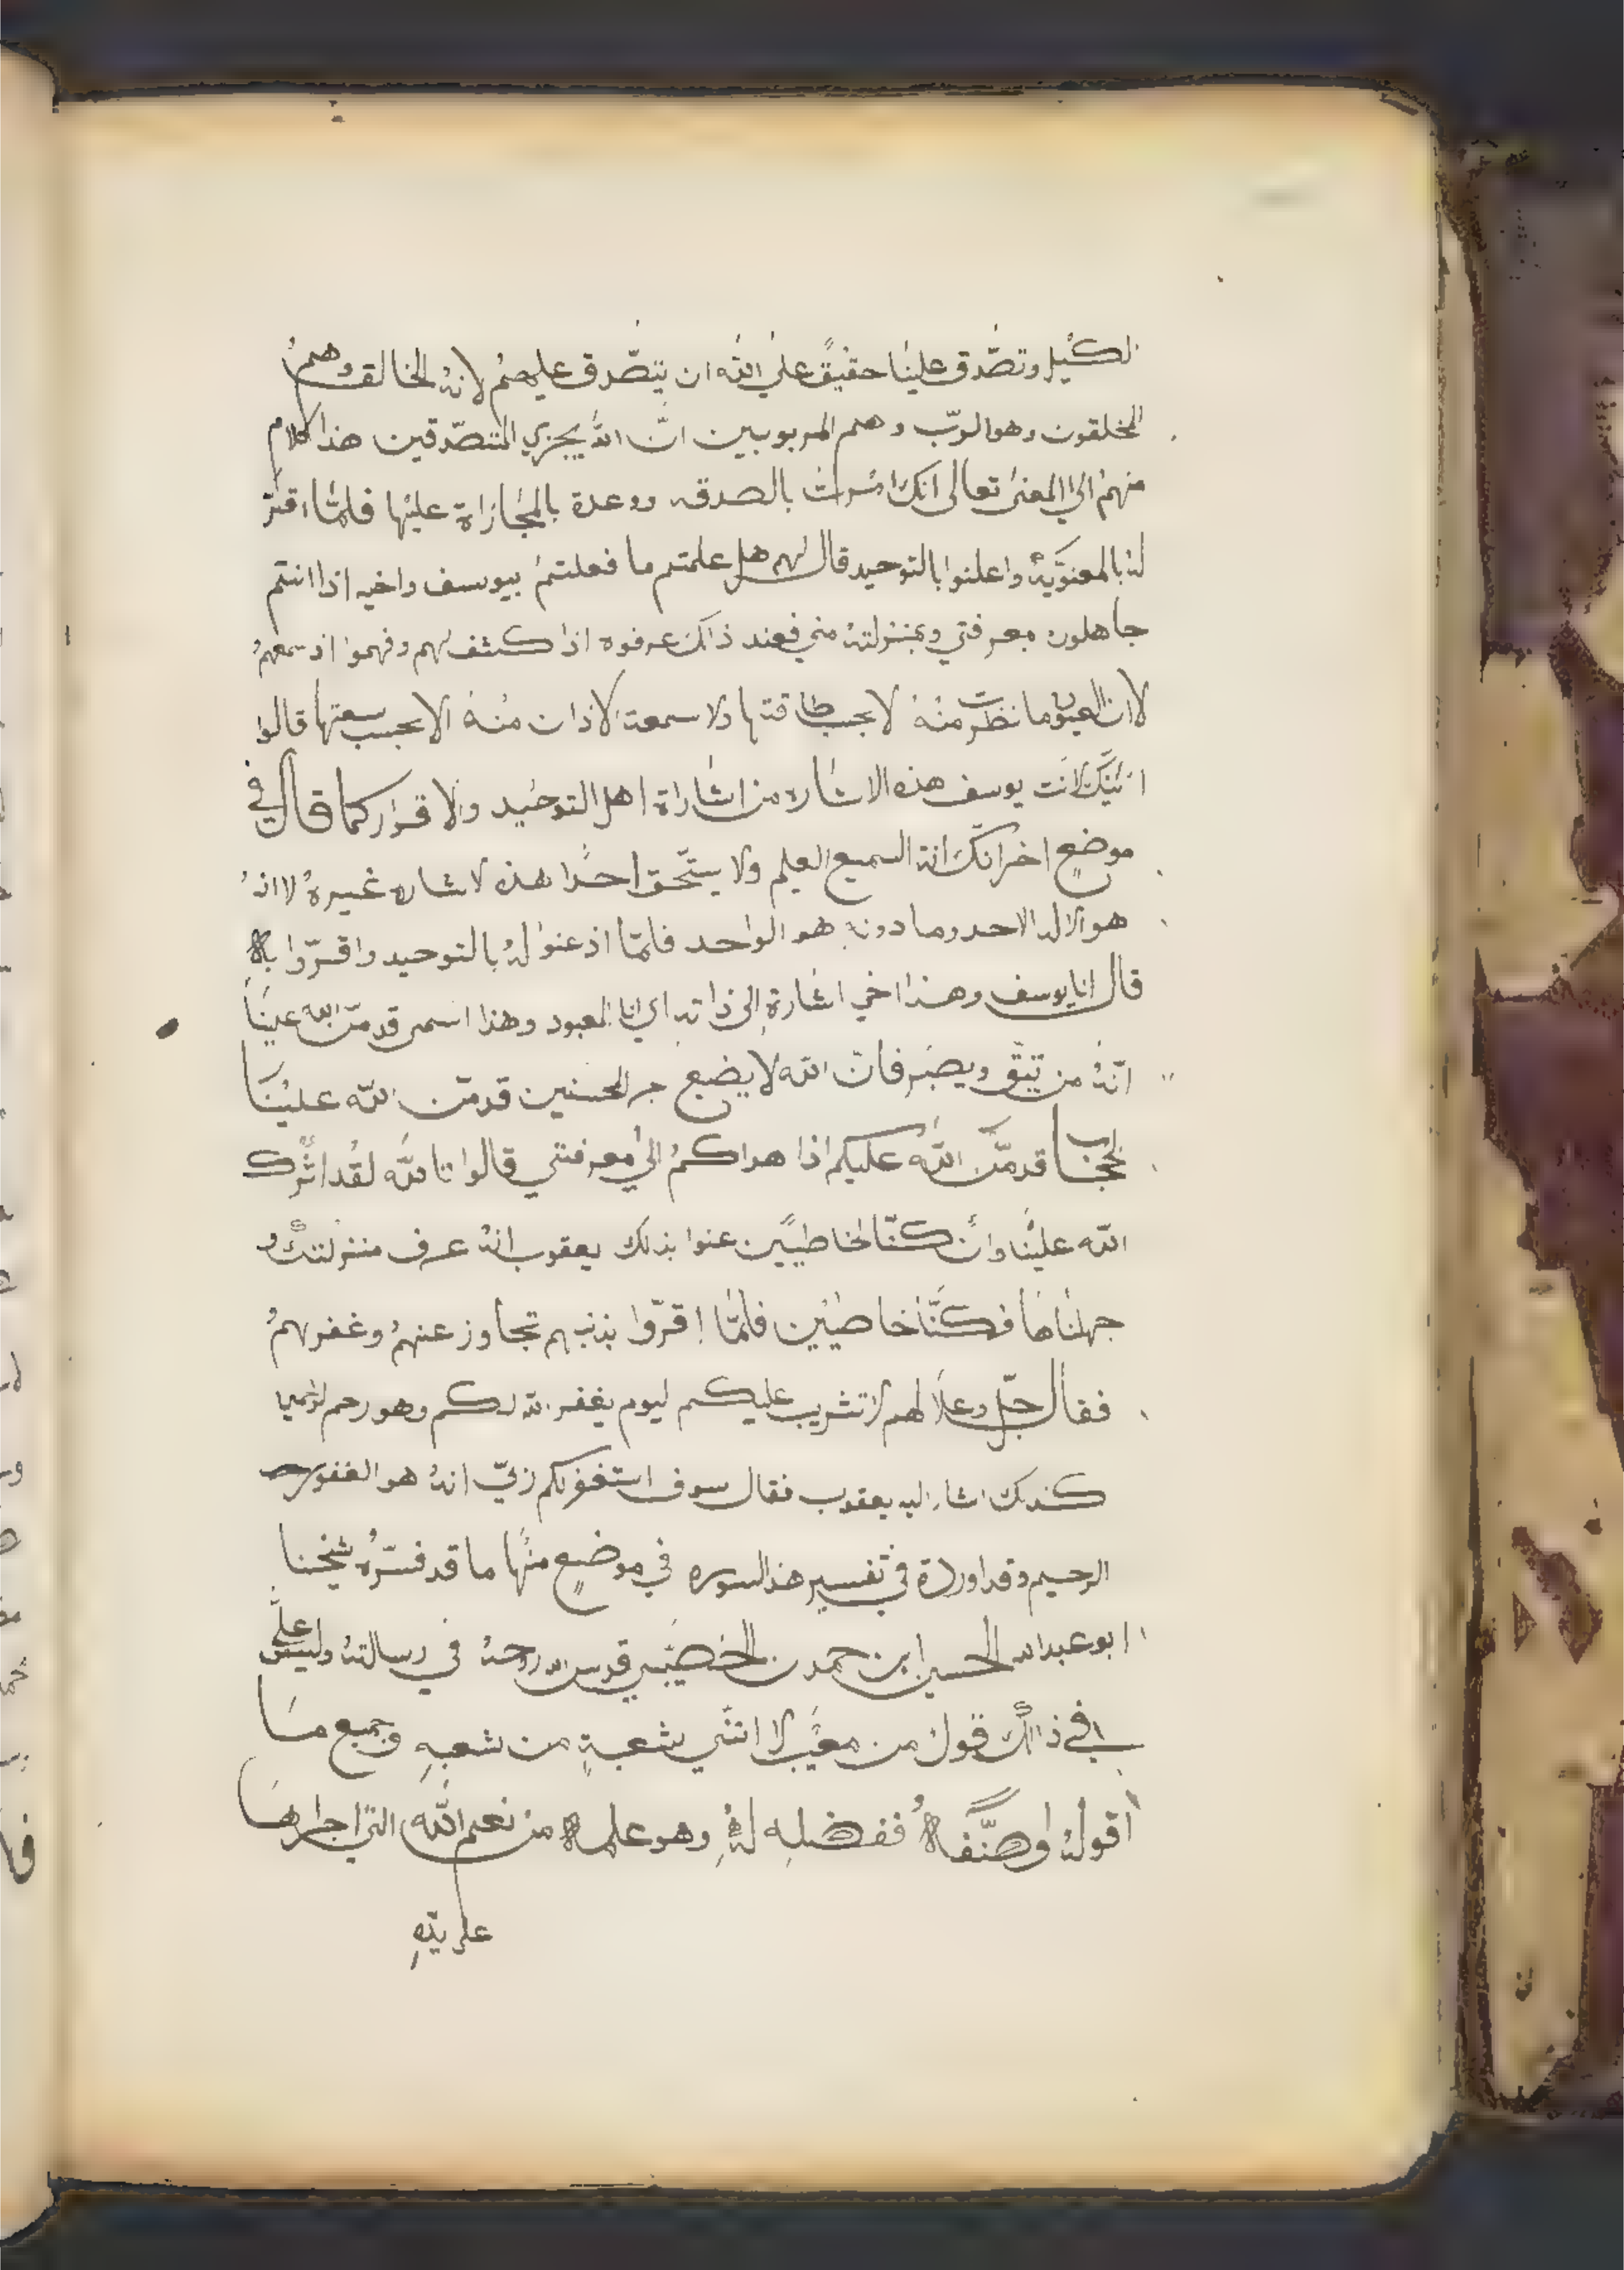 لكيل وتصّدق علينا حقيقً على الله ان يتصّدق عليهم لانهُ الخالق وهمُ
المخلقون وهو الربّ وهم المربوبين انّ اللهُ يجزي المتصّدقين هذا كلام
منهمُ الي المعنى تعالى انك امرت بالصدقه ووعدة بالمجازاة عليها فلمّا اقرّ
لهُ بالمعنويّة واعلنوا بالتوحيد قال لهم هل علمتم ما فعلتمُ بيوسف واخيه اذا انتم
جاهلون معرفتي وبمنزلتهُ مني فعند ذالك عرفوه اذا كشف لهم وفهموا اذ سمعهمُ
لان العيون ما نظرت منهُ لا بحسب طاقتها ولا سمعت الاذان منهُ الا بحسب سعتها قالوا
ائنّكَ لانت يوسف هذه الاشاره من اشاراة اهل التوحيد والاقرار كما قال في
موضعٍ اخر انّك انت السميع العليم ولا يستّحق احدًا هذه لاشاره غيرهُ لا انهُ
هو الاله الاحد وما دونه هو الواحد فلمّا اذعنوا لهُ بالتوحيد واقرّوا به
قال انا يوسف وهذا اخي اشارة الى ذاته اي انا المعبود وهذا اسمي قد منّ الله علينا
انّهُ من يتق ويصبر فانّ الله لا يضيع جر المحسنين قد منّ الله علينَا
بحجنا قد منَّ اللهُ عليكم اذا هداكمُ الي معرفتي قالوا تا للهِ لقد اثرك
الله علينا وانْ كنّا لخاطيين عنوا بذلك يعقوب انهُ عرف منزلتك و
جهلناها فكنّا خاطيين فلمّا اقرّوا بذنبهم تجاوز عنهمُ وغفر لهمُ
فقال جلّ وعلا لهم لا تثريب عليكم ليوم يغفر الله لكم وهو رحم لرحمين
كذلك اشار اليه يعقوب فقال سوف استغفر لكم ربّي انهُ هو الغفور
الرحيم وقد اوردة في تفسير هذ السوره في موضعٍ منها ما قد فسّرهُ شيخنا
ابو عبد الله الحسين ابن حمدن الخصيبي قدس الله روحهُ في رسالتهُ وليس عليّ
في ذالك قول من معيب لا انّني شعبةٍ من شعبهِ وجميع مَا
اقولهُ اوصنّفهُ ففضلهِ لهُ وهو علمه من نعم الله التي اجراها
على يدّهِ